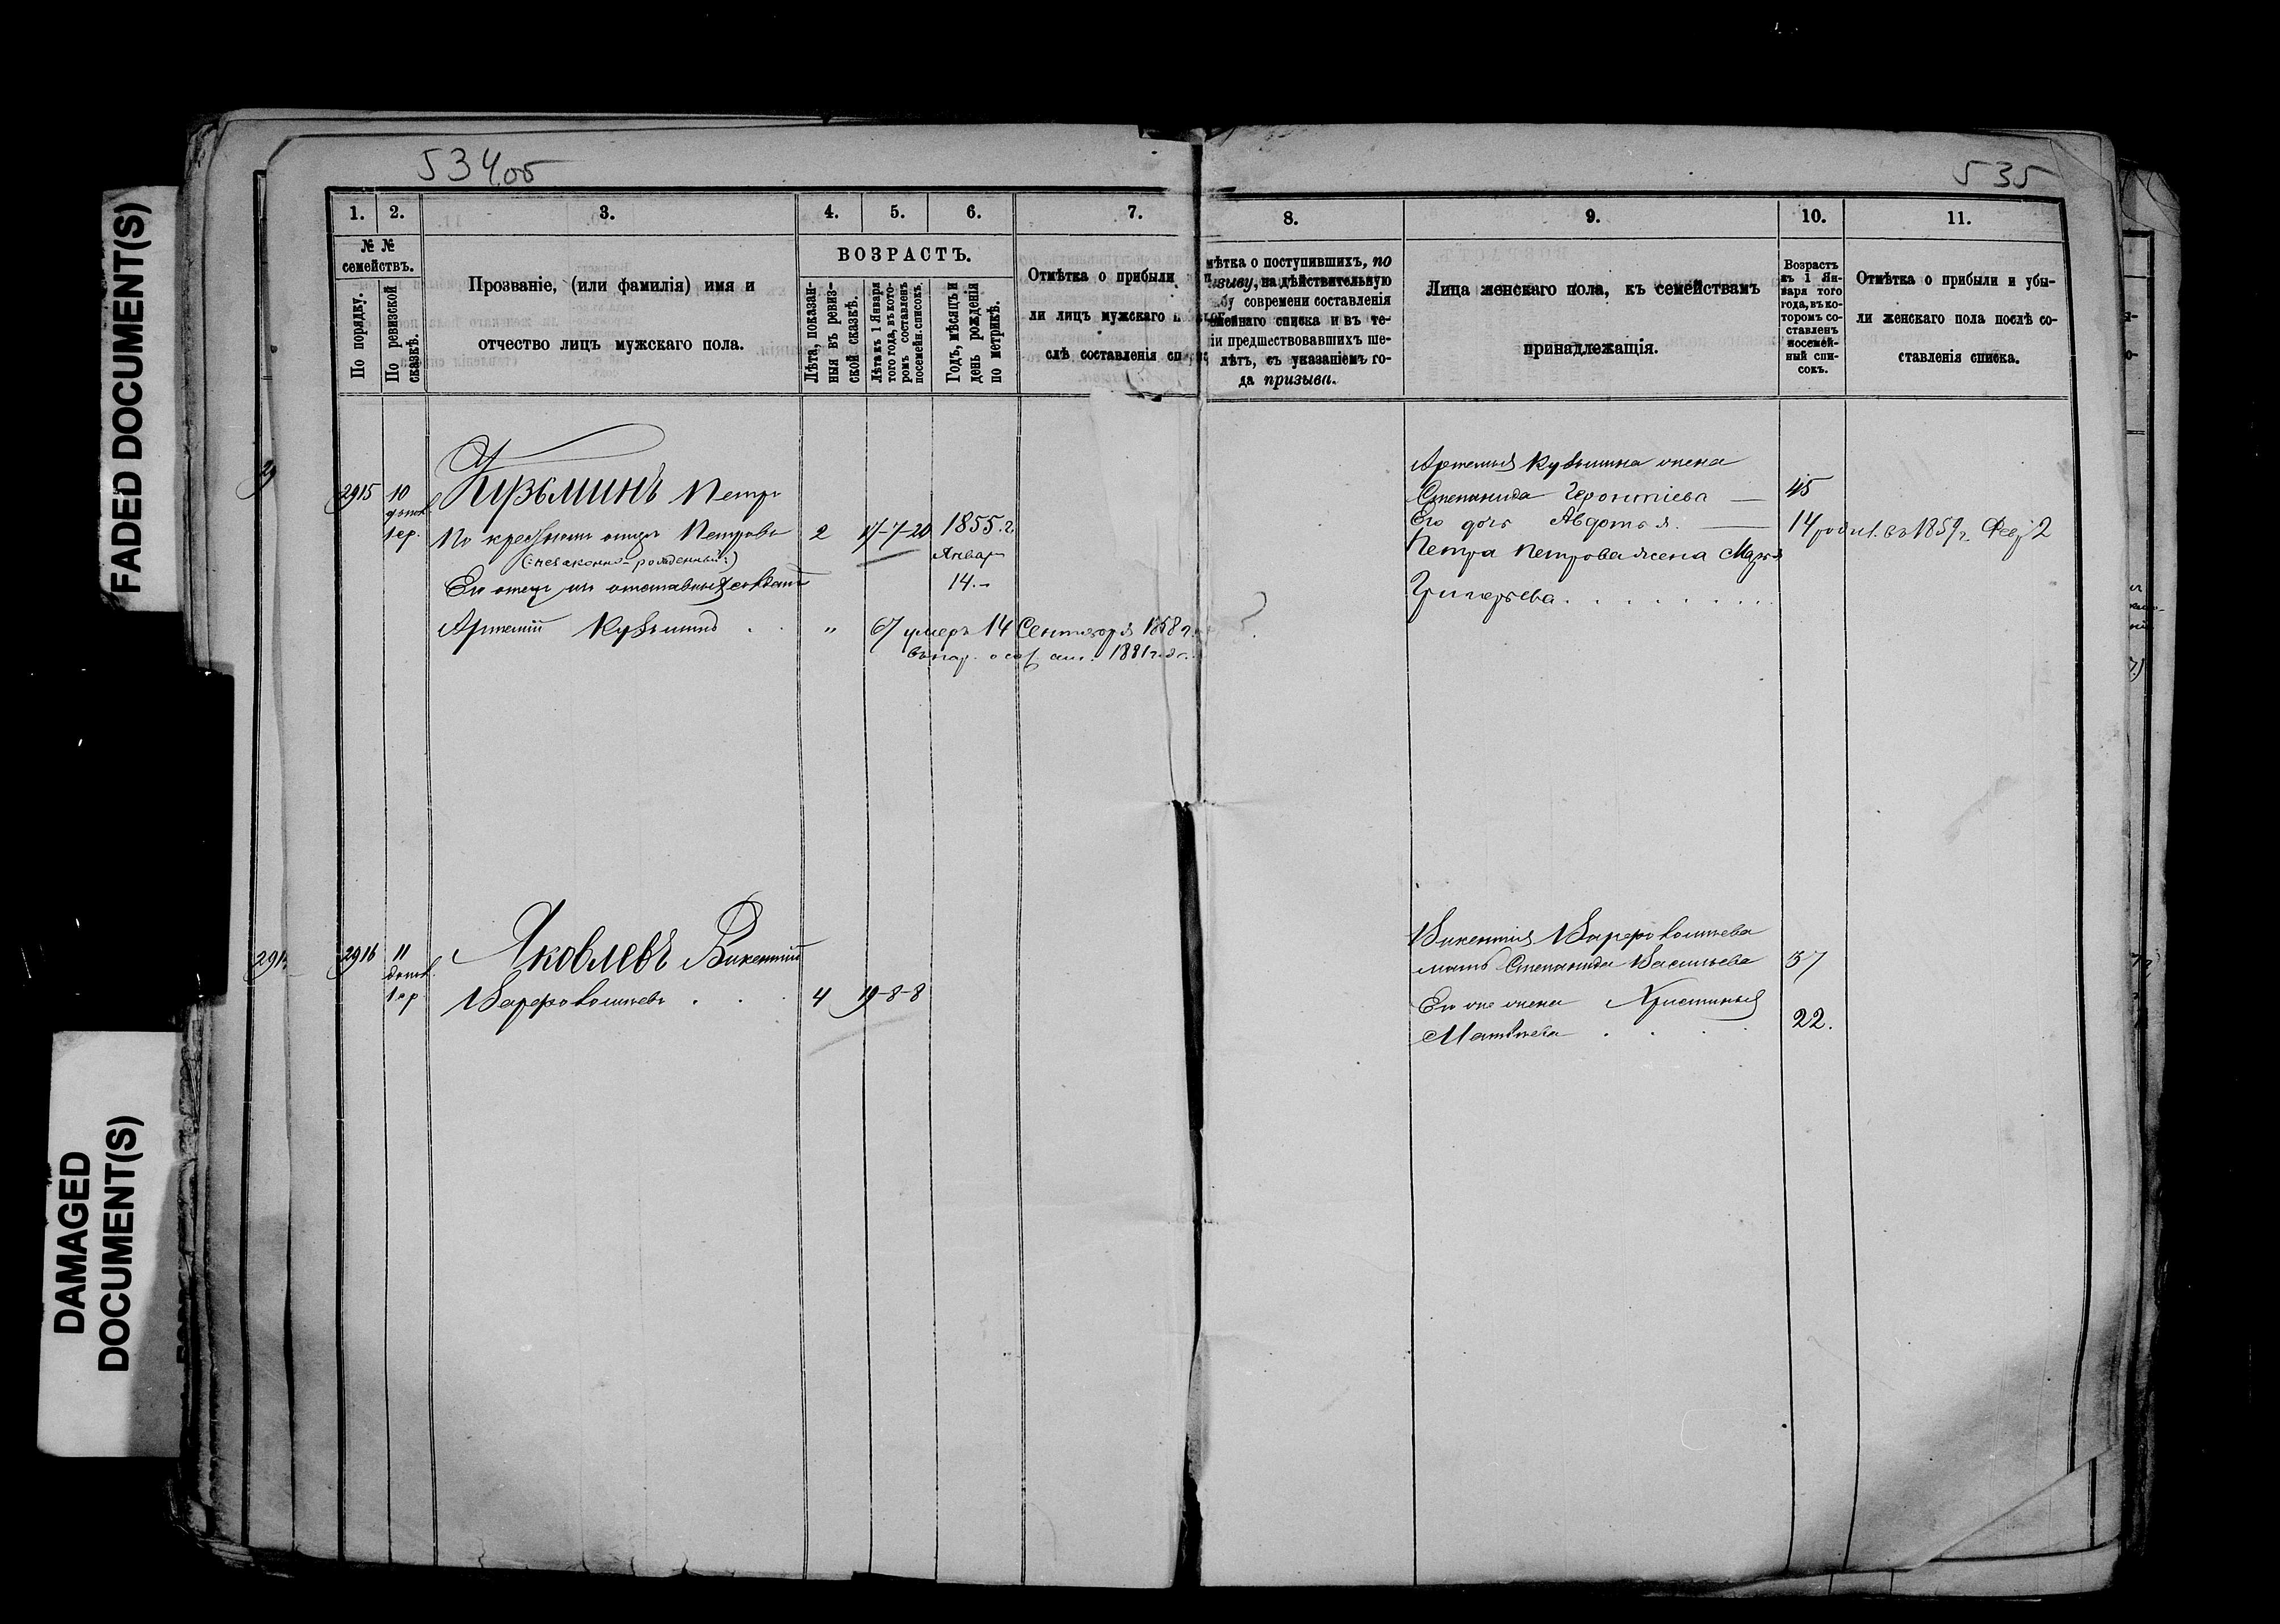 FADED DOCUMENT(S)
DAMAGED
DOCUMENT(S)
534об
535
1.
2.
3.
4.
5.
6.
7.
8.
9.
10.
11.
№ №
семействъ.
По порядку.
По ревизской
сказкѣ.
Прозваніе, (или фамилія) имя и
отчество лицъ мужскаго пола.
ВОЗРАСТЪ.
Лѣта, показан-
ныя въ ревиз-
ской сказкѣ.
Лѣта къ 1 Января
того года, въ кото-
ромъ составленъ
посемейн. списокъ.
Годъ, мѣсяцъ и
день рожденія
по метрикѣ.
Отмѣтка о прибыли
ли лицъ мужскаго
слѣ составленія
мѣтка о поступившихъ, по
зыву, на дѣйствительную
бу современи составленія
мейнаго списка и въ те-
іи предшествовавшихъ ше-
лѣтъ, съ указаніемъ го-
да призыва.
Лица женскаго пола, къ семействамъ
принадлежащія.
Возрастъ
къ 1 Ян-
варя того
года, въ ко-
торомъ со-
ставленъ
посемей-
ный спи-
сокъ.
Отмѣтка о прибыли и убы-
ли женскаго пола послѣ со-
ставленія списка.
2915 10 Кузьминъ Петръ
1 ер. По крестному отцу Петровъ 2 17-7-20 1855 г.
(незаконно-рожденный) Январ
Его отецъ изъ отставныхъ солдатъ 14.-
Артемій Кузьминъ " 67 умеръ 14 Сентября 1858 г.
1881 года
Артемія Кузьмина жена
Степанида Геронтіева — 45
Его дочь Авдотья — 14 родил. въ 1859 г. Фев 2
Петра Петрова жена Марья
Григорьева
2916 11 Яковлевъ Викентій
1 ер. Варфоломеевъ 4 19-8-8
Викентія Варфоломеева
мать Степанида Васильева 37
Его же жена Христинья
Матвѣева 22.